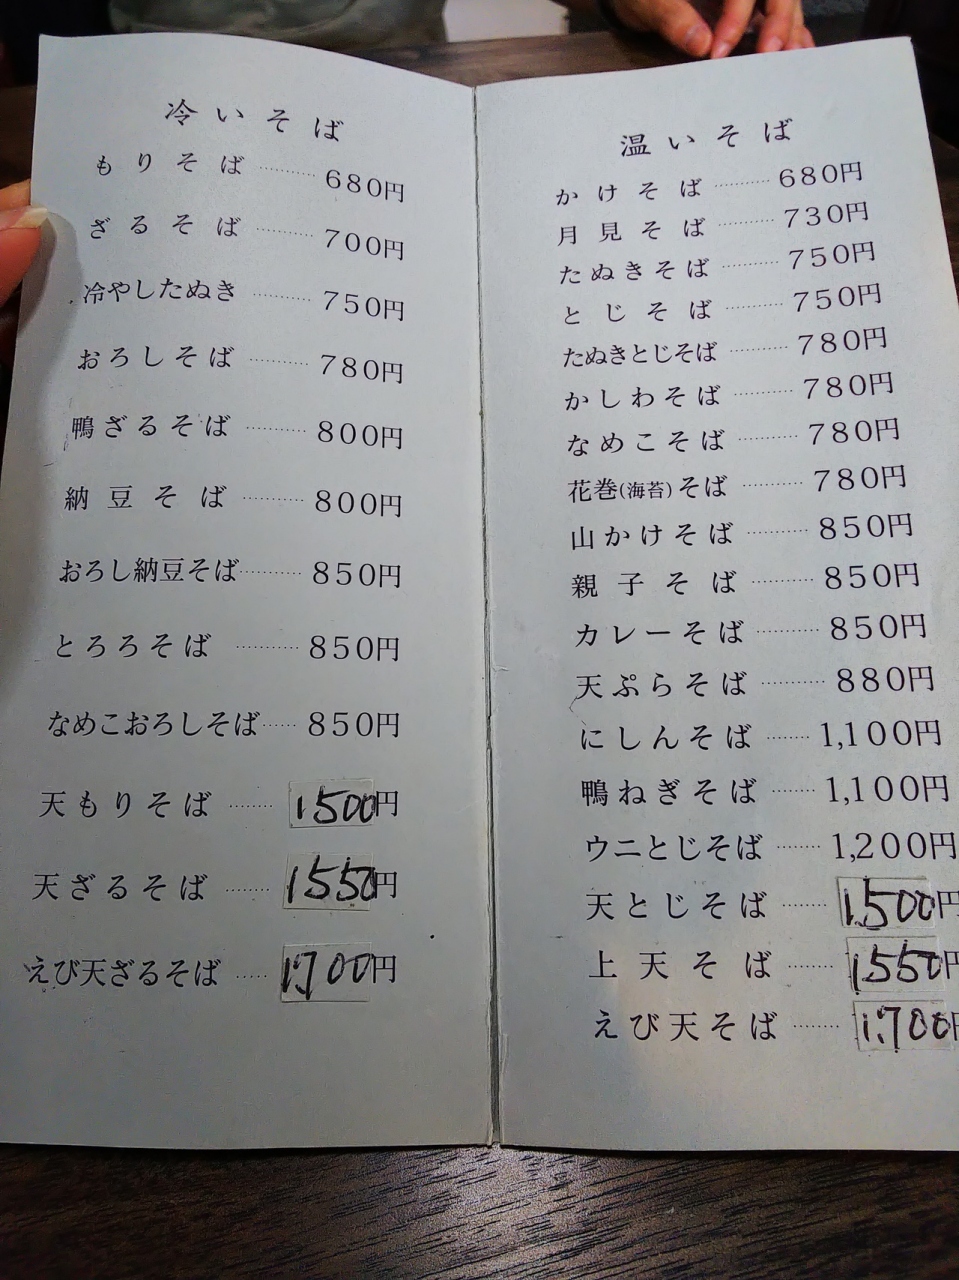 冷いそば
もりそば 680円
ざるそば 700円
冷やしたぬき 750円
おろしそば 780円
鴨ざるそば 800円
納豆そば 800円
おろし納豆そば 850円
とろろそば 850円
なめこおろしそば 850円
天もりそば 1500円
天ざるそば 1550円
えび天ざるそば 1,700円
温いそば
かけそば 680円
月見そば 730円
たぬきそば 750円
とじそば 750円
たぬきとじそば 780円
かしわそば 780円
なめこそば 780円
花巻(海苔)そば 780円
山かけそば 850円
親子そば 850円
カレーそば 850円
天ぷらそば 880円
にしんそば 1,100円
鴨ねぎそば 1,100円
ウニとじそば 1,200円
天とじそば 1,500円
上天そば 1,550円
えび天そば 1,700円